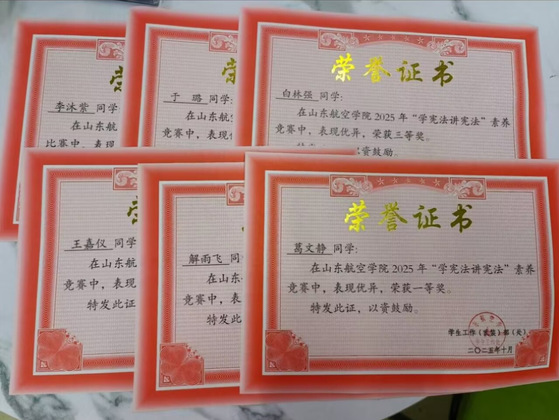 荣
李沐紫 同学:
在山东航
比赛中,表现
荣
于 璐 同学:
在山东航空
竞赛中,表现
荣誉证书
白林强 同学:
在山东航空学院2025年“学宪法讲宪法”素养
竞赛中,表现优异,荣获三等奖。
以资鼓励。
荣
王嘉仪 同学:
在山东航
竞赛中,表现
特发此证
解雨飞 同学:
在山东航空
竞赛中,表现
特发此证,
荣誉证书
葛文静 同学:
在山东航空学院2025年“学宪法讲宪法”素养
竞赛中,表现优异,荣获一等奖。
特发此证,以资鼓励。
学生工作(武装)部(处)
二〇二五年十月